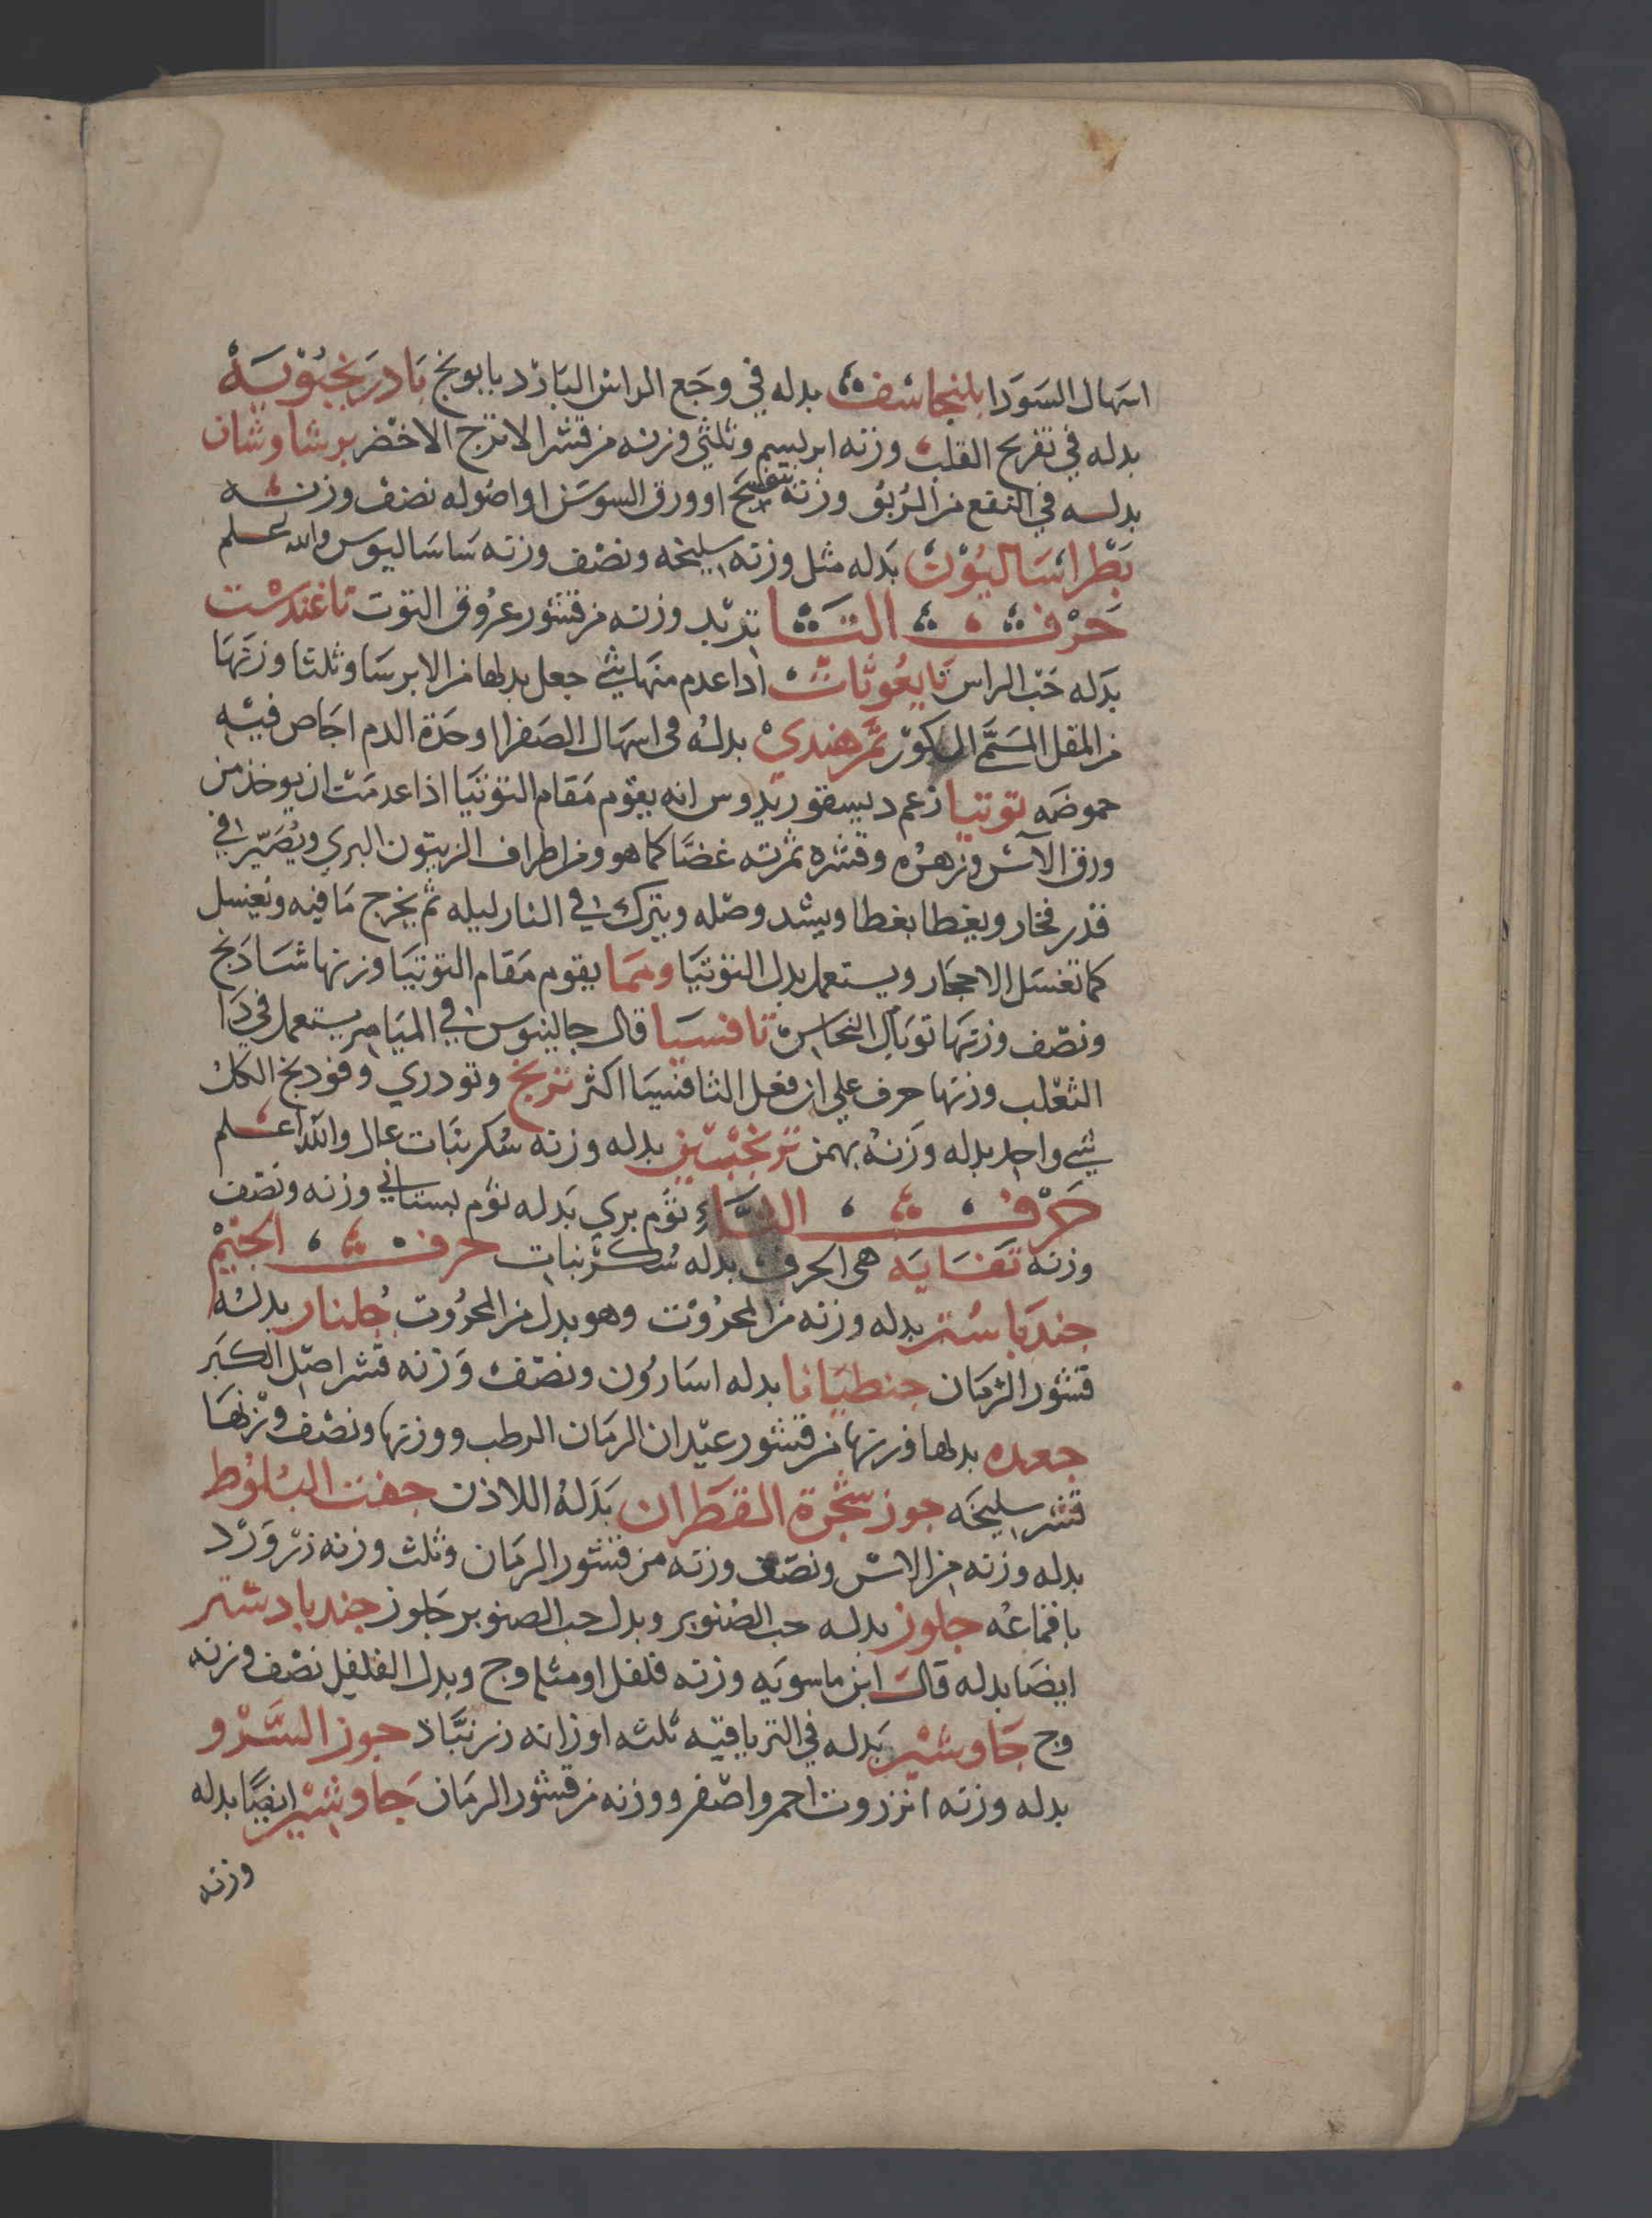 اسهال السودا بلنجاشف بدله في وجع الراس البارد بابونج بادرنجبويه
بدله في تفريح القلب وزنه ابريسم وثلثي وزنه من قشر الاترج الاخضر برشاوشان
بدله في النفع من الربو وزنه بنفسج او ورق السوسن او اصوله نصف وزنه
بطراساليون بدله مثل وزنه سليخه ونصف وزنه ساساليوس والله علم
حرف التا تربد وزنه من قشور عروق التوت تاغندست
بدله حب الراس اذا عدم منها شي جعل بدلها من الايرسا وثلثا وزنها
من المقل المسمى الكور تمر هندي بدله في اسهال الصفرا وحدة الدم اجاص فيه
حموضه توتيا زعم ديسقوريدوس انه يقوم مقام التوتيا اذا عدمت ان يوخذ من
ورق الآس وزهره وقشره ثمرته غضا كما هو ومن اطراف الزيتون البري ويصير في
قدر فخار ويغطا بغطا ويشد وصله ويترك في النار ليله ثم يخرج ما فيه ويغسل
كما تغسل الاحجار ويستعمل بدل التوتيا ومما يقوم مقام التوتيا وزنها شادنج
ونصف وزنها توبال النحاس تافسيا قال جالينوس في الميامر يستعمل في دا
الثعلب وزنها حرف على ان فعل الثافسيا اكثر تربخ وتودري وفودنج الكل
شي واحد بدله وزنه بهمن ترنجبين بدله وزنه سكر نبات عال والله اعلم
حرف الثاء ثوم بري بدله ثوم بستاني وزنه ونصف
وزنه ثفايه هي الحرف بدله سكر نبات حرف الجيم
جندباستر بدله وزنه من المحروت وهو بدل من المحروت جلنار بدله
قشور الرمان جنطيانا بدله اسارون ونصف وزنه قشر اصل الكبر
جعده بدلها وزنها من قشور عيدان الرمان الرطب ووزنها ونصف وزنها
قشر سليخه جوز شجرة القطران بدله اللاذن جفت البلوط
بدله وزنه من الاس ونصف وزنه من قشور الرمان وثلث وزنه زر ورد
باقماعه جلوز بدله حب الصنوبر وبدل حب الصنوبر جلوز جندبادستر
ايضا بدله قال ابن ماسويه وزنه فلفل او مثله وج وبدل الفلفل نصف وزنه
وج جاوشير بدله في الترياقيه ثلثه اوزانه زرنباد جوز السرو
بدله وزنه انزروت احمر واصفر ووزنه من قشور الرمان جاوشير ايضا بدله
وزنه